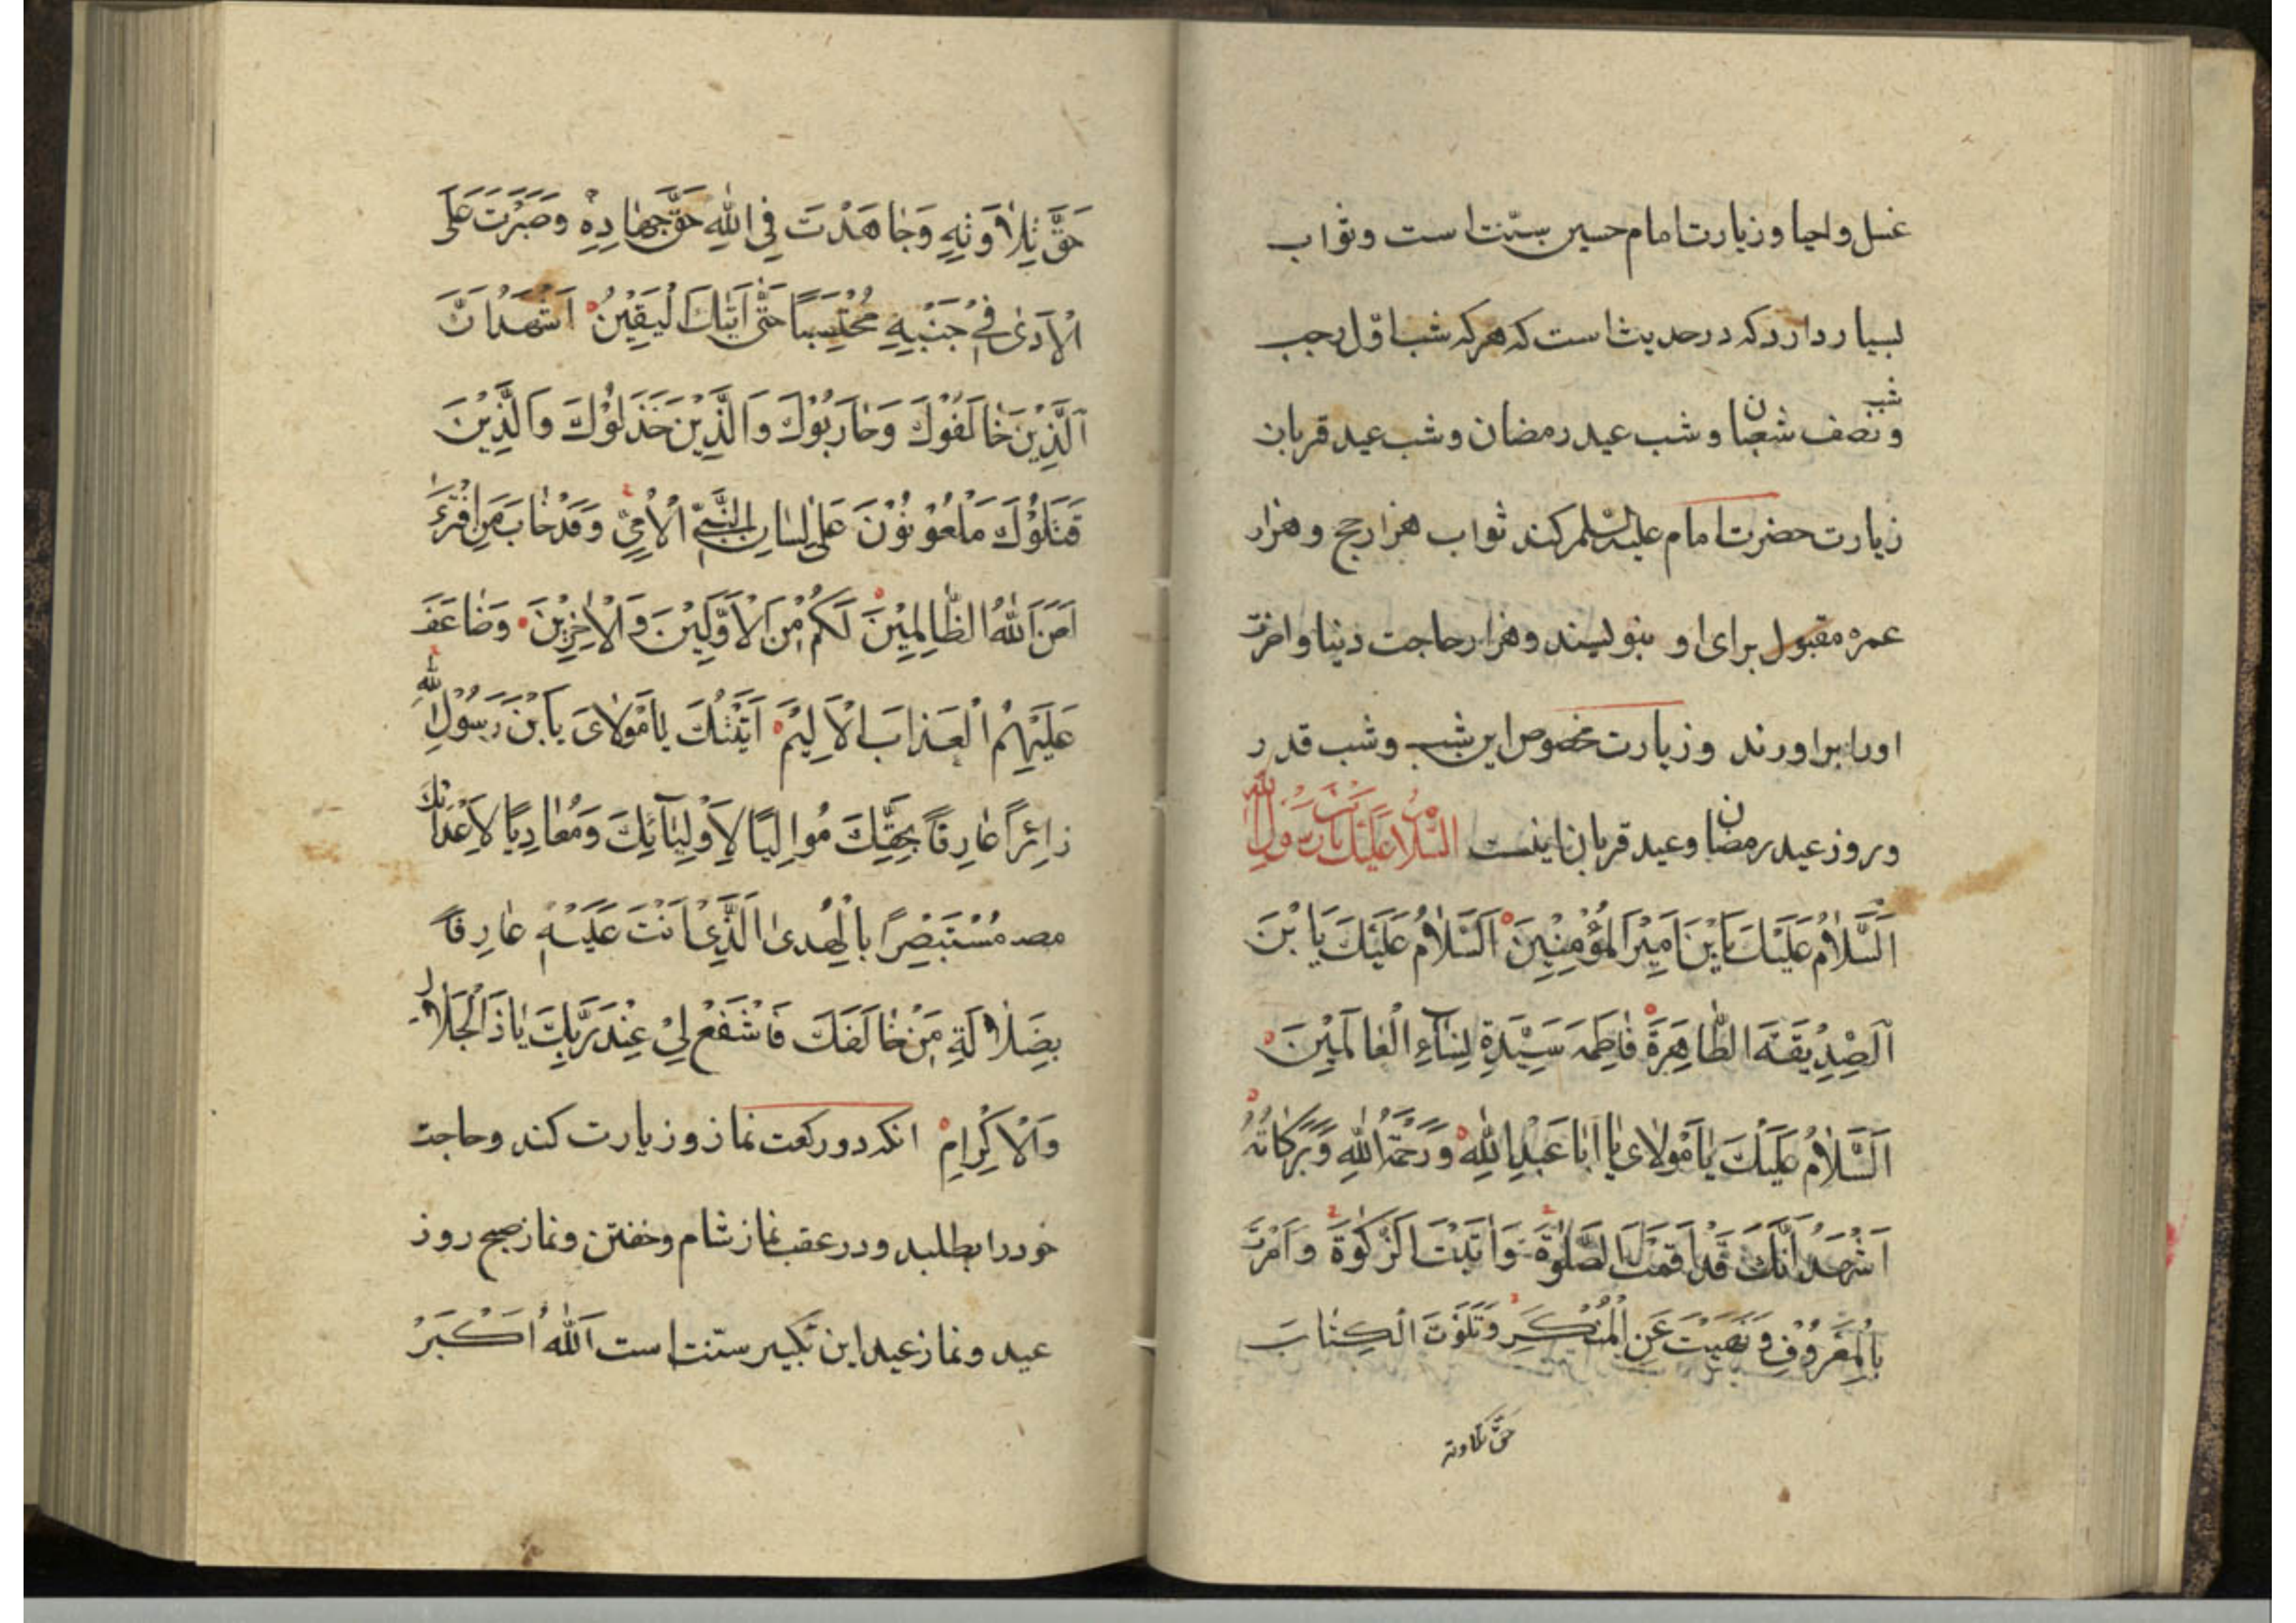 غسل و احیا و زیارت امام حسین سنّت است و ثواب
بسیار دارد که در حدیث است که هر که شب اوّل رجب
و شب نصف شعبان و شب عید رمضان و شب عید قربان
زیارت حضرت امام علیه السلم کند ثواب هزار حج و هزار
عمره مقبول برای او بنویسند و هزار حاجت دنیا و اخرت
اورا براورند و زیارت مخصوص این شب و شب قدر
و روز عید رمضان و عید قربان اینست السَّلامُ عَلَیْكَ یَابْنَ رَسُولِ اللهِ
اَلسَّلامُ عَلَیْكَ یَابْنَ اَمِیْرَ الْمُؤْمِنِیْنَ اَلسَّلامُ عَلَیْكَ یَابْنَ
اَلصِّدِیْقَةَ الطّاهِرَةَ فاطِمَه سَیِّدَةِ نِسٰآءِ الْعٰالَمِیْنَ
اَلسَّلامُ عَلَیْكَ یٰامَوْلٰایَ یٰا اَبٰا عَبْدِ اللهِ وَرَحْمَةُ اللهِ وَبَرَكاتُهُ
اَشْهَدُ اَنَّكَ قَدْ اَقَمْتَ الصَّلٰوةَ وَاٰتَیْتَ الزَّكٰوةَ وَاَمَرْتَ
بِالْمَعْرُوْفِ وَنَهَیْتَ عَنِ الْمُنْكَرِ وَتَلَوْتَ الْكِتٰابَ
حَقَّ تلاوته
حَقَّ تِلاٰوَتِهِ وَجٰاهَدْتَ فِی اللهِ حَقَّ جِهٰادِهِ وَصَبَرْتَ عَلَی
الْاَذیٰ فِیْ جَنْبِهِ مُحْتَسِبًا حَتّٰی اَتٰیكَ الْیَقِیْنُ اَشْهَدُ اَنَّ
اَلَّذِیْنَ خٰالَفُوْكَ وَحٰارَبُوْكَ وَالَّذِیْنَ خَذَلُوْكَ وَالَّذِیْنَ
قَتَلُوْكَ مَلْعُوْنُوْنَ عَلٰی لِسٰانِ النَّبِیِّ الْاُمِّیِّ وَقَدْ خٰابَ مَنِ افْتَرٰی
لَعَنَ اللهُ الظّٰالِمِیْنَ لَكُمْ مِنَ الْاَوَّلِیْنَ وَالْاٰخِرِیْنَ وَضٰاعَفَ
عَلَیْهِمُ الْعَذابَ الْاَلِیْمَ اَتَیْتُكَ یٰامَوْلٰایَ یَابْنَ رَسُوْلِ اللهِ
زٰائِرًا عٰارِفًا بِحَقِّكَ مُوالِیًا لِاَوْلِیٰآئِكَ وَمُعٰادِیًا لِاَعْدٰائِكَ
مُسْتَبْصِرًا بِالْهُدیٰ الَّذِیْ اَنْتَ عَلَیْهِ عٰارِفًا
بِضَلٰالَةِ مَنْ خٰالَفَكَ فَاشْفَعْ لِیْ عِنْدَ رَبِّكَ یٰاذَا الْجَلٰالِ
وَالْاِكْرٰامِ انکه دو رکعت نماز و زیارت کند و حاجت
خود را بطلبد و در عقب نماز شام و خفتن و نماز صبح روز
عید و نماز عید این تکبیر سنّت است اَللهُ اَكْبَرُ